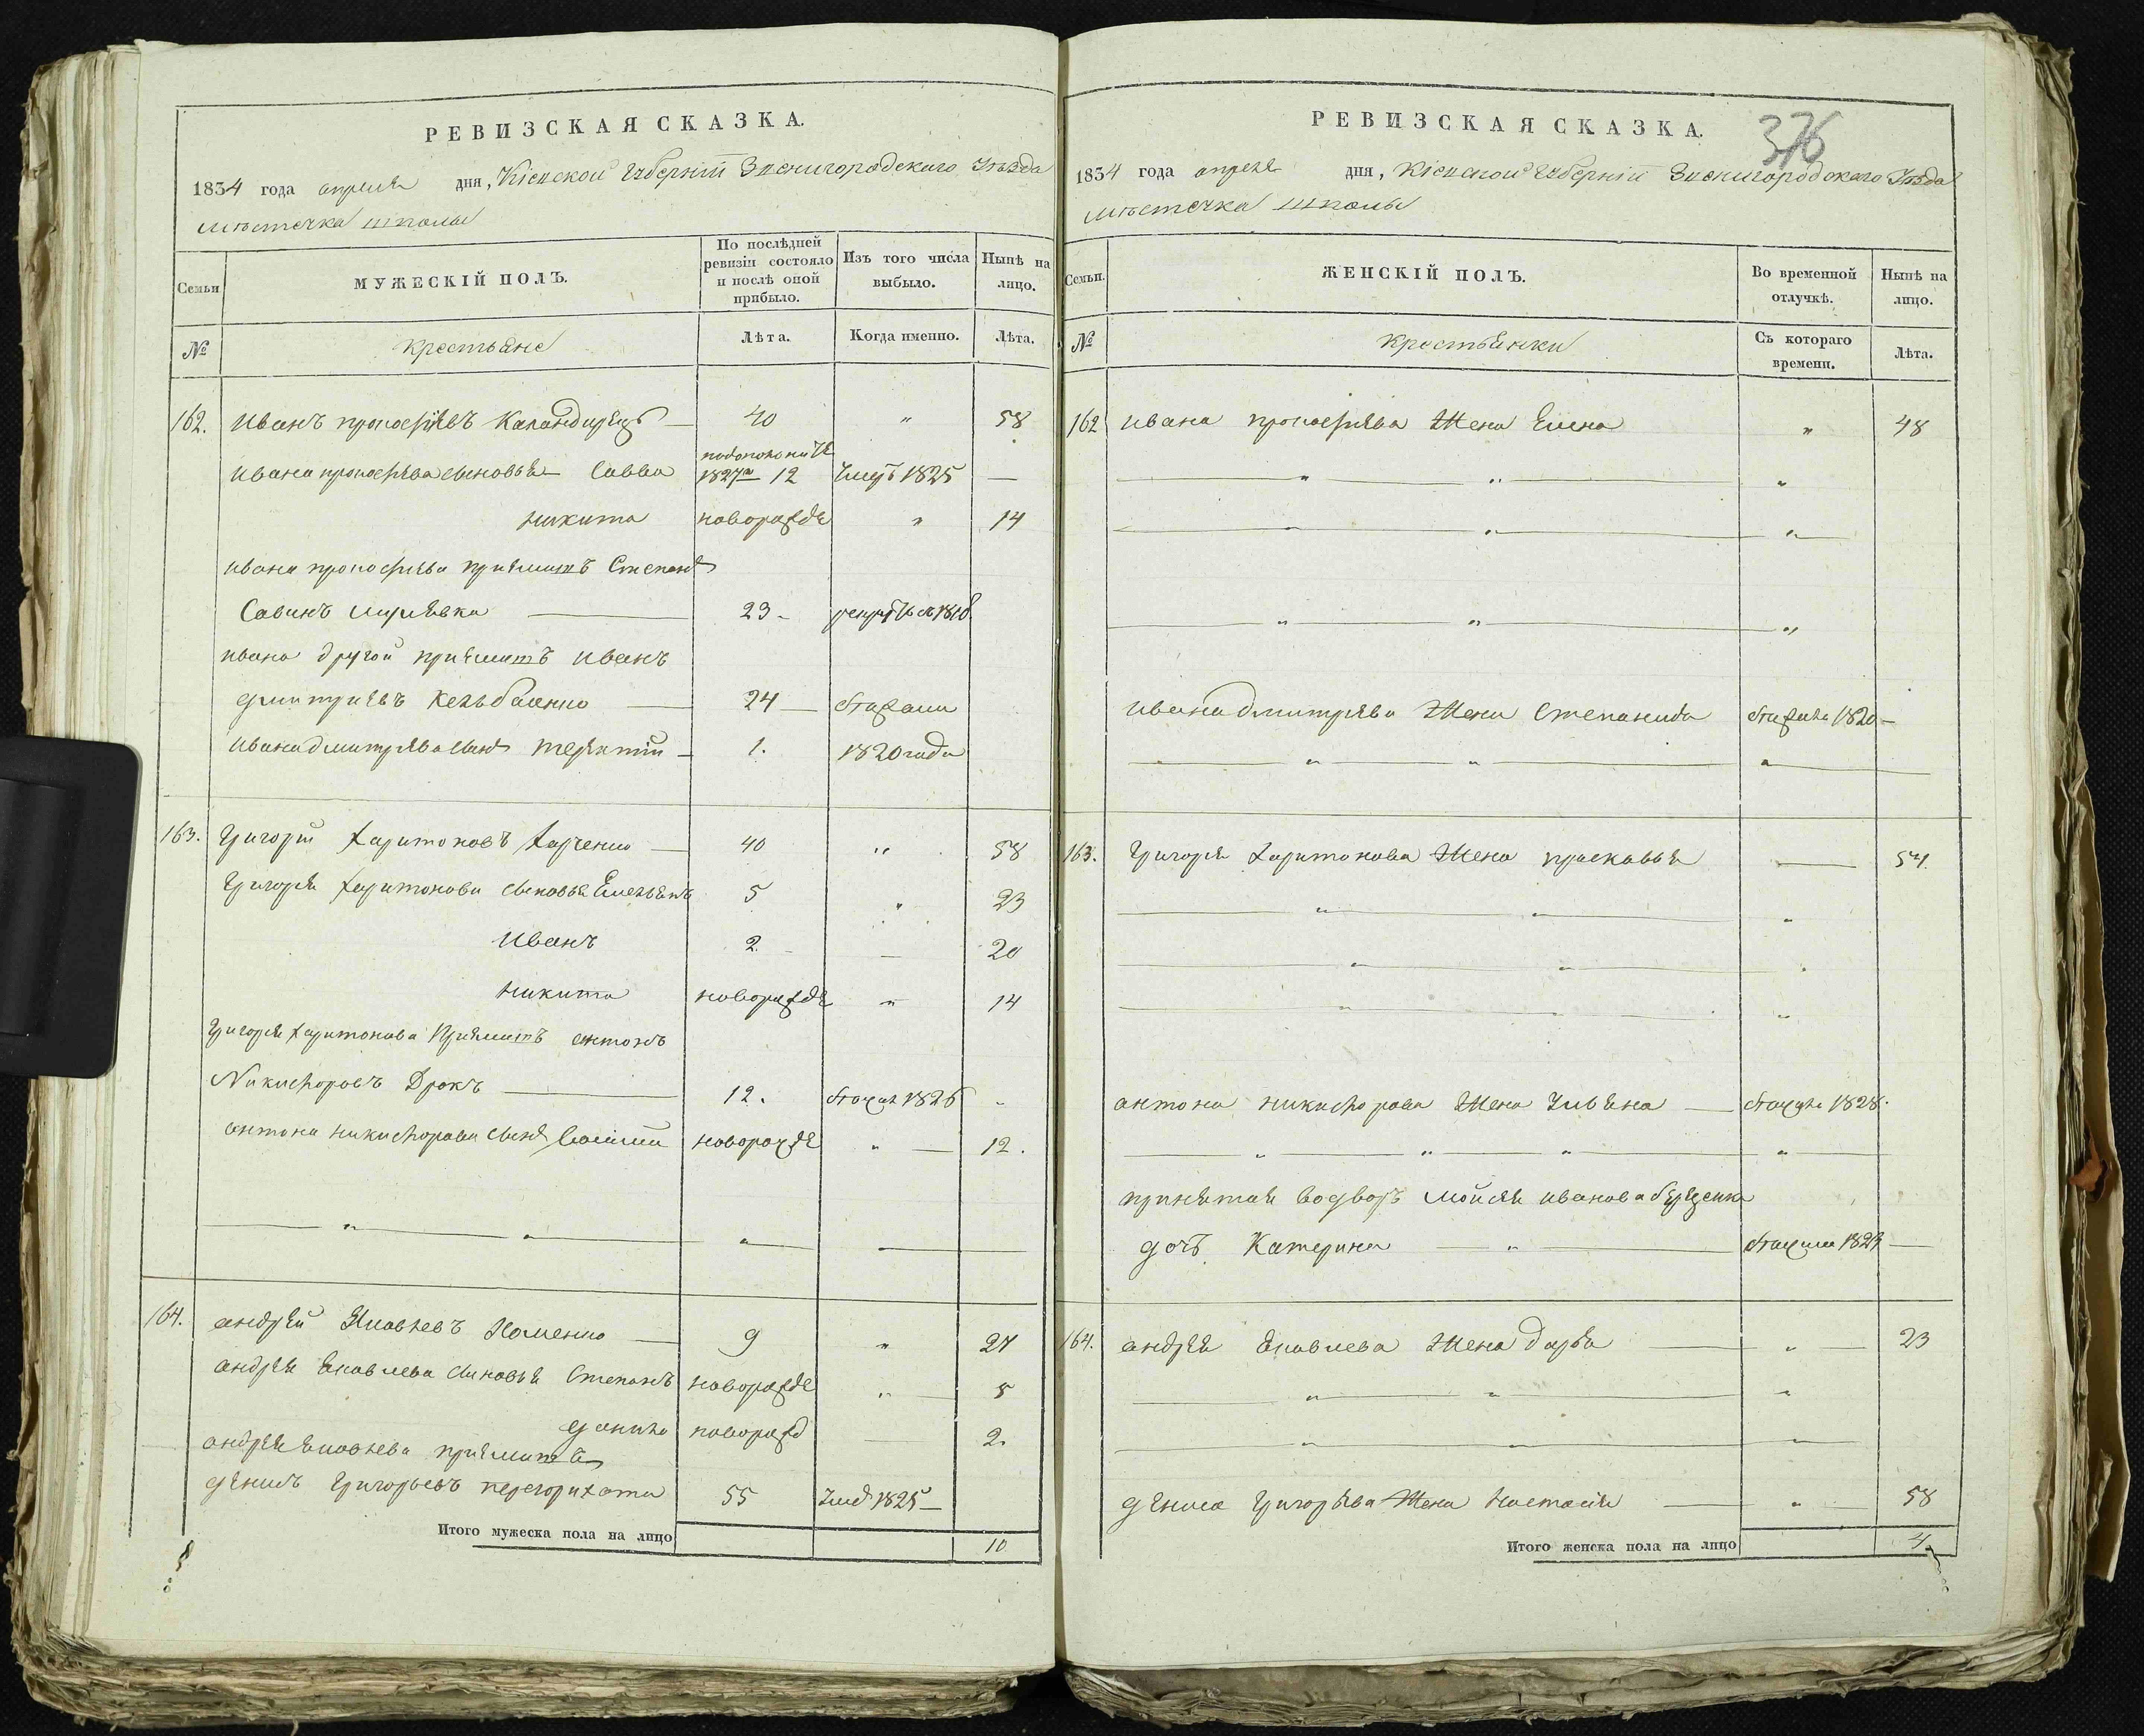 РЕВИЗСКАЯ СКАЗКА.
1834 года апреля дня, Кіевской Губерніи Звенигородского Уезда
местечка Шполы
Семьи МУЖЕСКІЙ ПОЛЪ. По послѣдней ревизіи состояло и послѣ оной прибыло. Изъ того числа выбыло. Нынѣ на лицо.
№ Крестьяне Лѣта. Когда именно. Лѣта.
162. Иванъ прокофіевъ 40 " 58
Ивана прокофьева сыновья Савва 1827 12 Умръ 1825 —
Никита новорожде " 14
Ивана прокофьева приимитъ Степанъ
Савинъ 23 -
Ивана другой приимитъ Иванъ
дмитріевъ 24 — бежали
Ивана дмитріева сынъ терентій 1. 1820 года
163. Григорій Харитоновъ Харченко 40 " 58
Григорія Харитонова сыновья Емельянъ 5 " 23
Иванъ 2 — 20
Никита новорожде " 14
Григорія Харитонова Приимитъ антонъ
Никифоровъ Дрокъ 12. бежал 1826 -
антона никифорова сынъ новорожде " 12.
164. андрей Яковлевъ Коменко 9 " 27
андрея Яковлева сыновья Степанъ новорожде " 5
данило новорожд — 2.
андрея Яковлева приимитъ
денисъ Григорьевъ 55 Умръ 1825 —
Итого мужеска пола на лицо 10
РЕВИЗСКАЯ СКАЗКА. 376
1834 года апреля дня, Кіевской Губерніи Звенигородского Уезда
местечка Шполы
Семьи. ЖЕНСКІЙ ПОЛЪ. Во временной отлучкѣ. Нынѣ на лицо.
№ Крестьянки Съ котораго времени. Лѣта.
162 Ивана прокофьева Жена Елена " 48
Ивана дмитріева Жена Степанида бежала 1820 —
163. Григорія Харитонова Жена прасковья — 54.
антона никифорова Жена Ульяна — бежала 1828.
принятая во дворъ Мойсея Иванова
дочь Катерина
164. андрея Яковлева Жена дарья " 23
дениса Григорьева Жена Настасія " 58
Итого женска пола на лицо 4